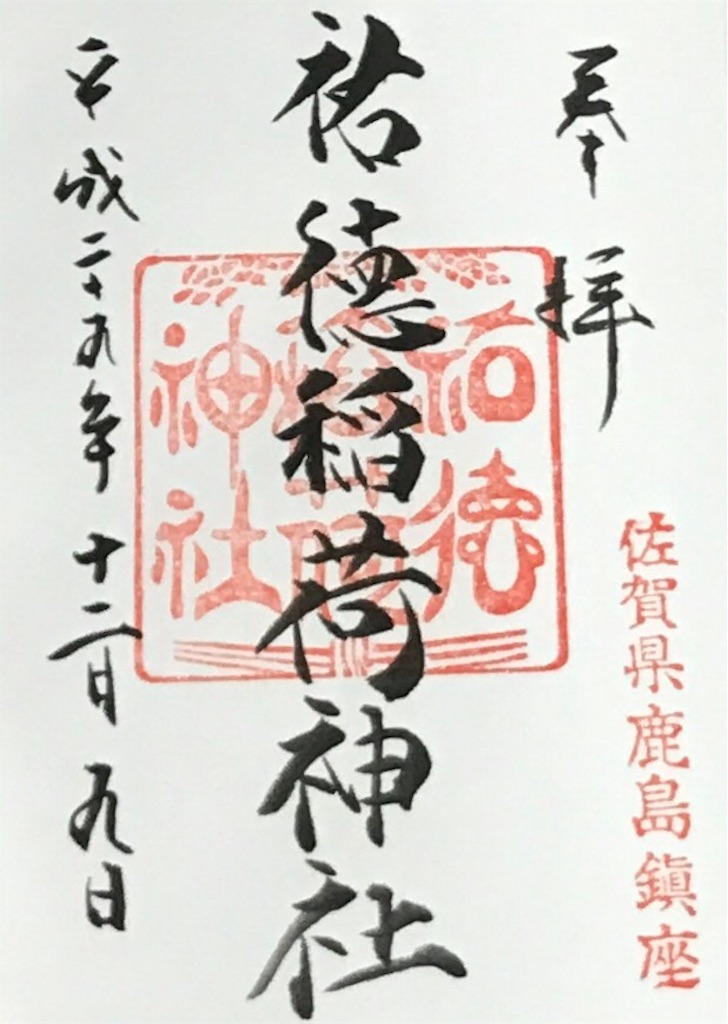 奉拝
佐賀県鹿島鎮座
祐徳稲荷神社
祐徳
稲荷
神社
平成二十九年十二月九日